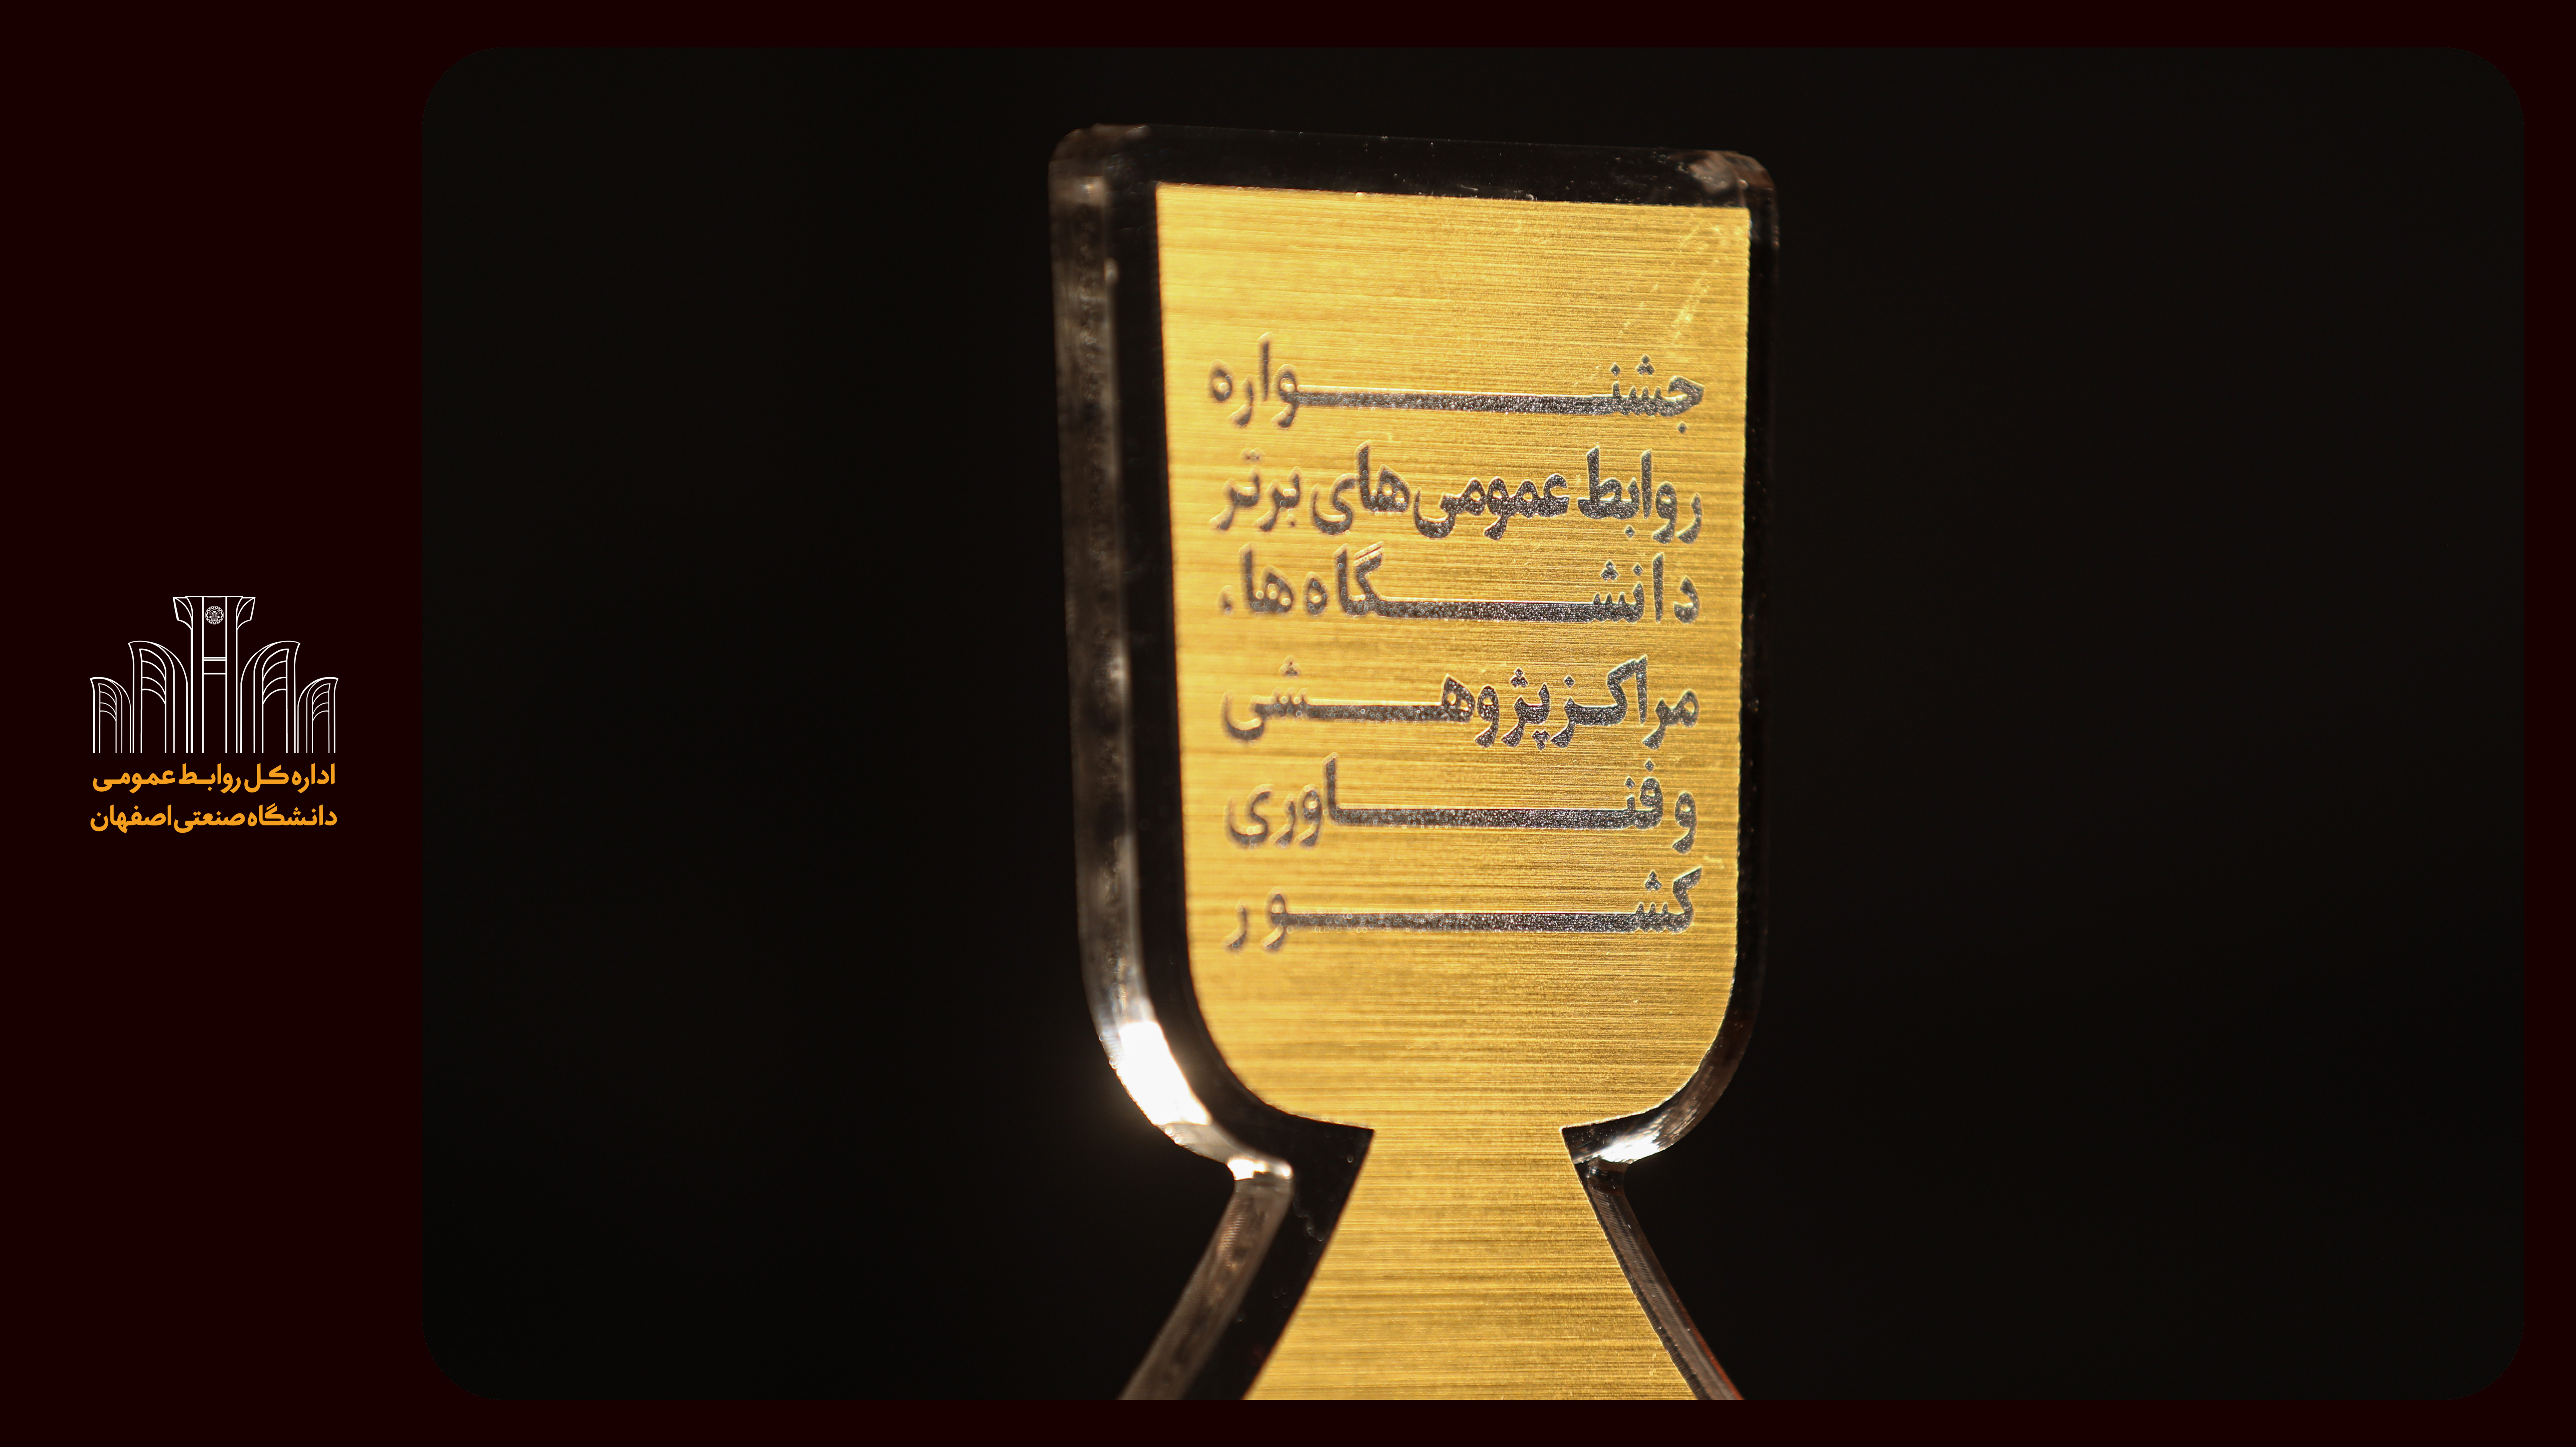 جشنواره
روابط عمومی‌های برتر
دانشگاه ها،
مراکز پژوهشی
و فناوری
کشور
اداره کل روابط عمومی
دانشگاه صنعتی اصفهان